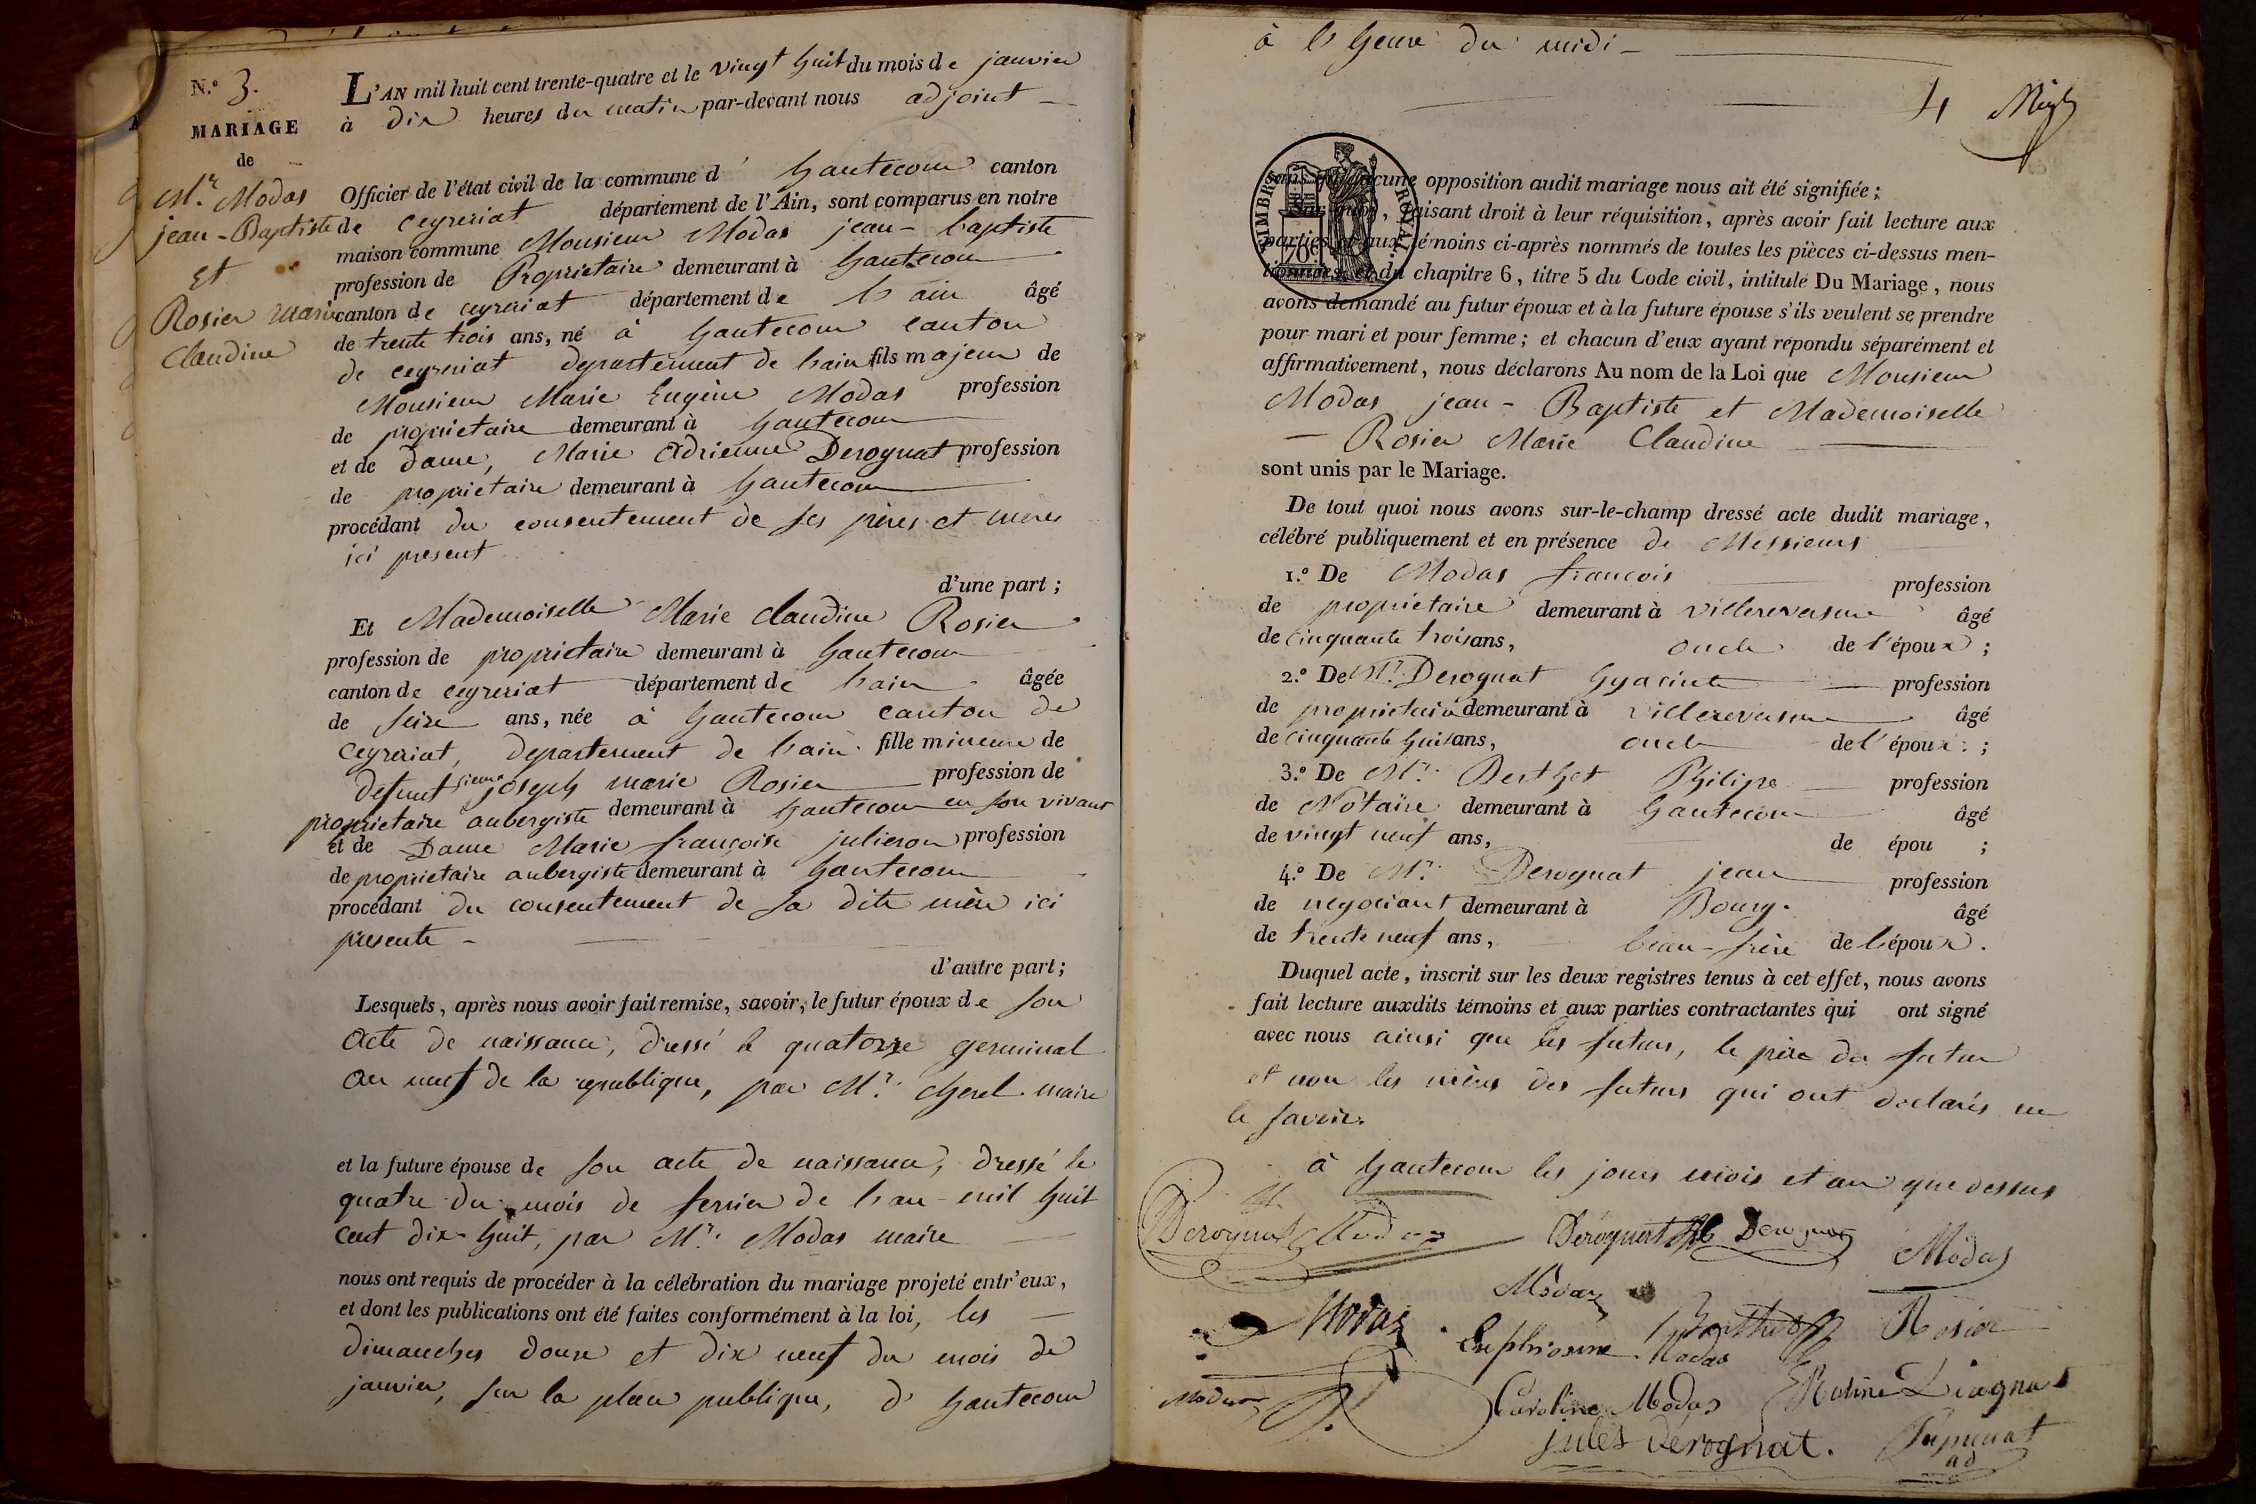 N.º 3.
MARIAGE
de
Mr. Modas
jean-Baptiste
Et
Rosier marie
Claudine
L'AN mil huit cent trente-quatre et le vingt huit du mois de janvier
à dix heures du matin par-devant nous adjoint
Officier de l'état civil de la commune d' hautecour canton
de ceyzeriat département de l'Ain, sont comparus en notre
maison commune Monsieur Modas jean-baptiste
profession de Proprietaire demeurant à hautecour
canton de ceyzeriat département de l'ain âgé
de trente trois ans, né à hautecour canton
de ceyzeriat departement de l'ain fils majeur de
Monsieur Marie Eugène Modas profession
de proprietaire demeurant à hautecour
et de dame, Marie Adrienne Derognat profession
de proprietaire demeurant à hautecour
procédant du consentement de ses pères et mères
ici present
d'une part ;
Et Mademoiselle Marie claudine Rosier
profession de proprietaire demeurant à hautecour
canton de ceyzeriat département de l'ain âgée
de seize ans, née à hautecour canton de
ceyzeriat, departement de l'ain fille mineure de
defunt sieur joseph marie Rosier profession de
proprietaire aubergiste demeurant à hautecour en son vivant
et de Dame Marie françoise julieron profession
de proprietaire aubergiste demeurant à hautecour
procédant du consentement de sa dite mère ici
presente -
d'autre part ;
Lesquels, après nous avoir fait remise, savoir, le futur époux de son
acte de naissance, dressé le quatorze germinal
an neuf de la republique, par Mr. maire
et la future épouse de son acte de naissance, dressé le
quatre du mois de fevrier de l'an mil huit
cent dix-huit, par Mr. Modas maire
nous ont requis de procéder à la célébration du mariage projeté entr'eux,
et dont les publications ont été faites conformément à la loi, les
dimanches douze et dix neuf du mois de
janvier, sur la place publique, d' hautecour
à l'heure du midi -
4
TIMBRE ROYAL
70c
sans qu'aucune opposition audit mariage nous ait été signifiée ;
Sur quoi, faisant droit à leur réquisition, après avoir fait lecture aux
parties et aux témoins ci-après nommés de toutes les pièces ci-dessus men-
tionnées, et du chapitre 6, titre 5 du Code civil, intitulé Du Mariage, nous
avons demandé au futur époux et à la future épouse s'ils veulent se prendre
pour mari et pour femme ; et chacun d'eux ayant répondu séparément et
affirmativement, nous déclarons Au nom de la Loi que Monsieur
Modas jean-Baptiste et Mademoiselle
Rosier Marie Claudine
sont unis par le Mariage.
De tout quoi nous avons sur-le-champ dressé acte dudit mariage,
célébré publiquement et en présence de Messieurs
1.º De Modas francois profession
de proprietaire demeurant à villereversure âgé
de cinquante trois ans, oncle de l'époux ;
2.º De Mr. Derognat hyacinte profession
de proprietaire demeurant à villereversure âgé
de cinquante huit ans, oncle de l'époux ;
3.º De Mr. Berthet Philipe profession
de Notaire demeurant à hautecour âgé
de vingt neuf ans, de épou ;
4.º De Mr. Derognat jean profession
de negociant demeurant à Bourg. âgé
de trente neuf ans, beau-frère de l'époux.
Duquel acte, inscrit sur les deux registres tenus à cet effet, nous avons
fait lecture auxdits témoins et aux parties contractantes qui ont signé
avec nous ainsi que les futurs, le père du futur
et non les mères des futurs qui ont declarés ne
le savoir.
à hautecour les jours mois et an que dessus
Derognat Modas Derognat Derognat Modas
Modas
Modas Euphrosine Modas Berthet Rosier
Modas Caroline Modas
jules derognat.
ad